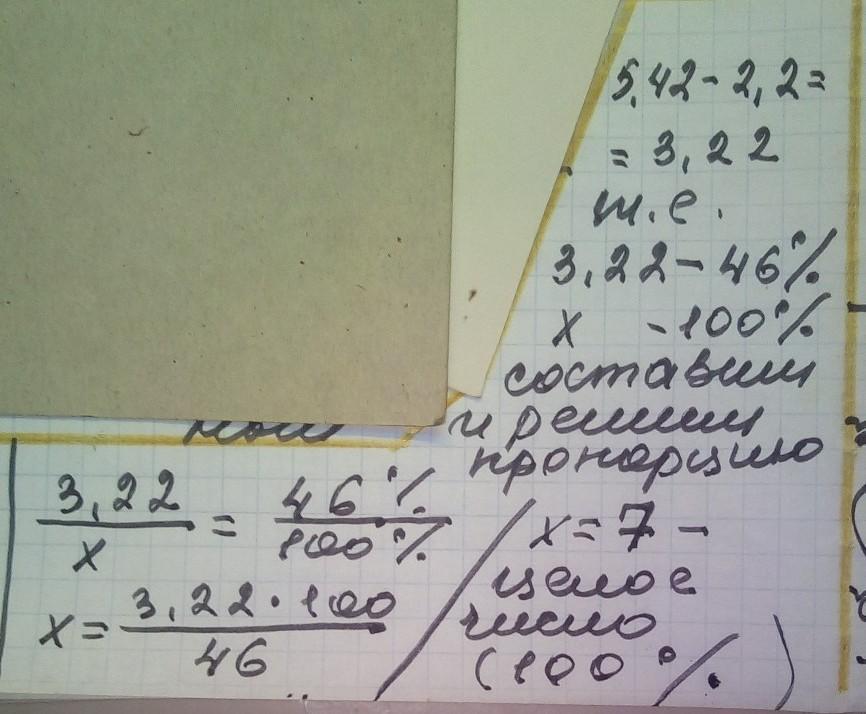 5,42 - 2,2 =
= 3,22
т.е.
3,22 - 46%
x - 100%
составим
и решим
пропорцию
3,22 / x = 46% / 100%
x = 3,22 · 100 / 46
x = 7 -
целое
число
(100%)